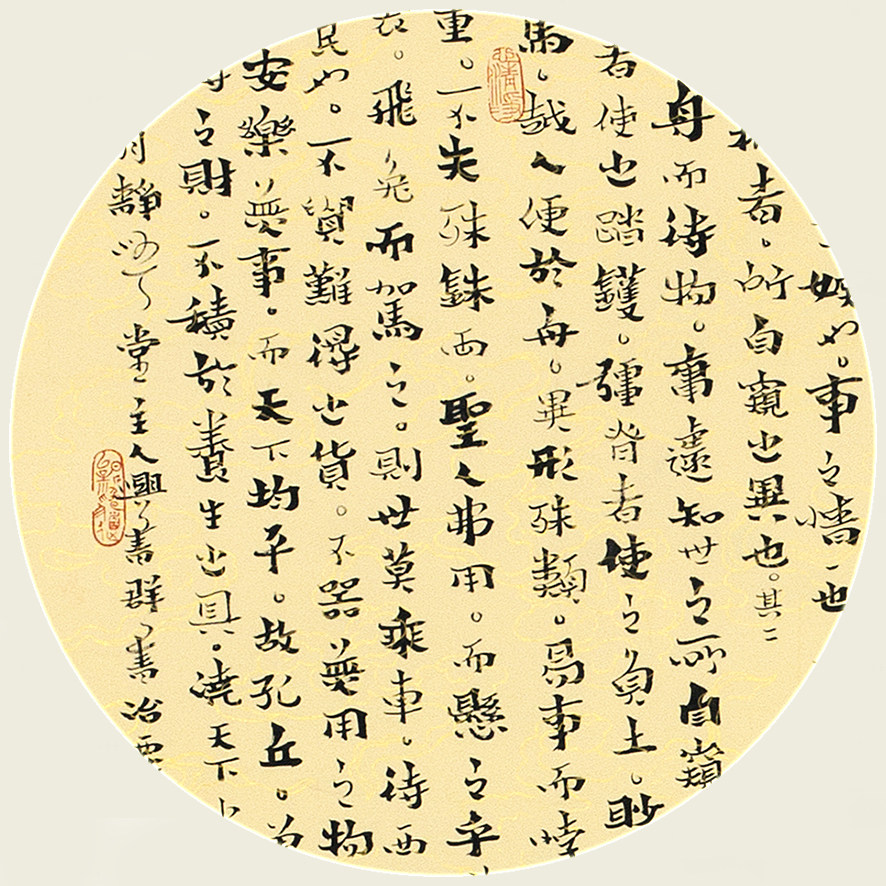 也。事之情一也
者。所自窺之異也。其二
舟而待物。知世之所自窺
者使之踏钁。彊脊者使之負土。眇
馬。越人便於舟。異形殊類。易事而悖
重。不失殊銖兩。聖人弗用。而懸之乎
衣。飛兔而駕之。則世莫乘車。待西
民也。不貿難得之貨。不器無用之物
安樂無事。而天下均平。故孔丘。
之財。不積於養生之具。澆天下
靜堂主人興書群書治要